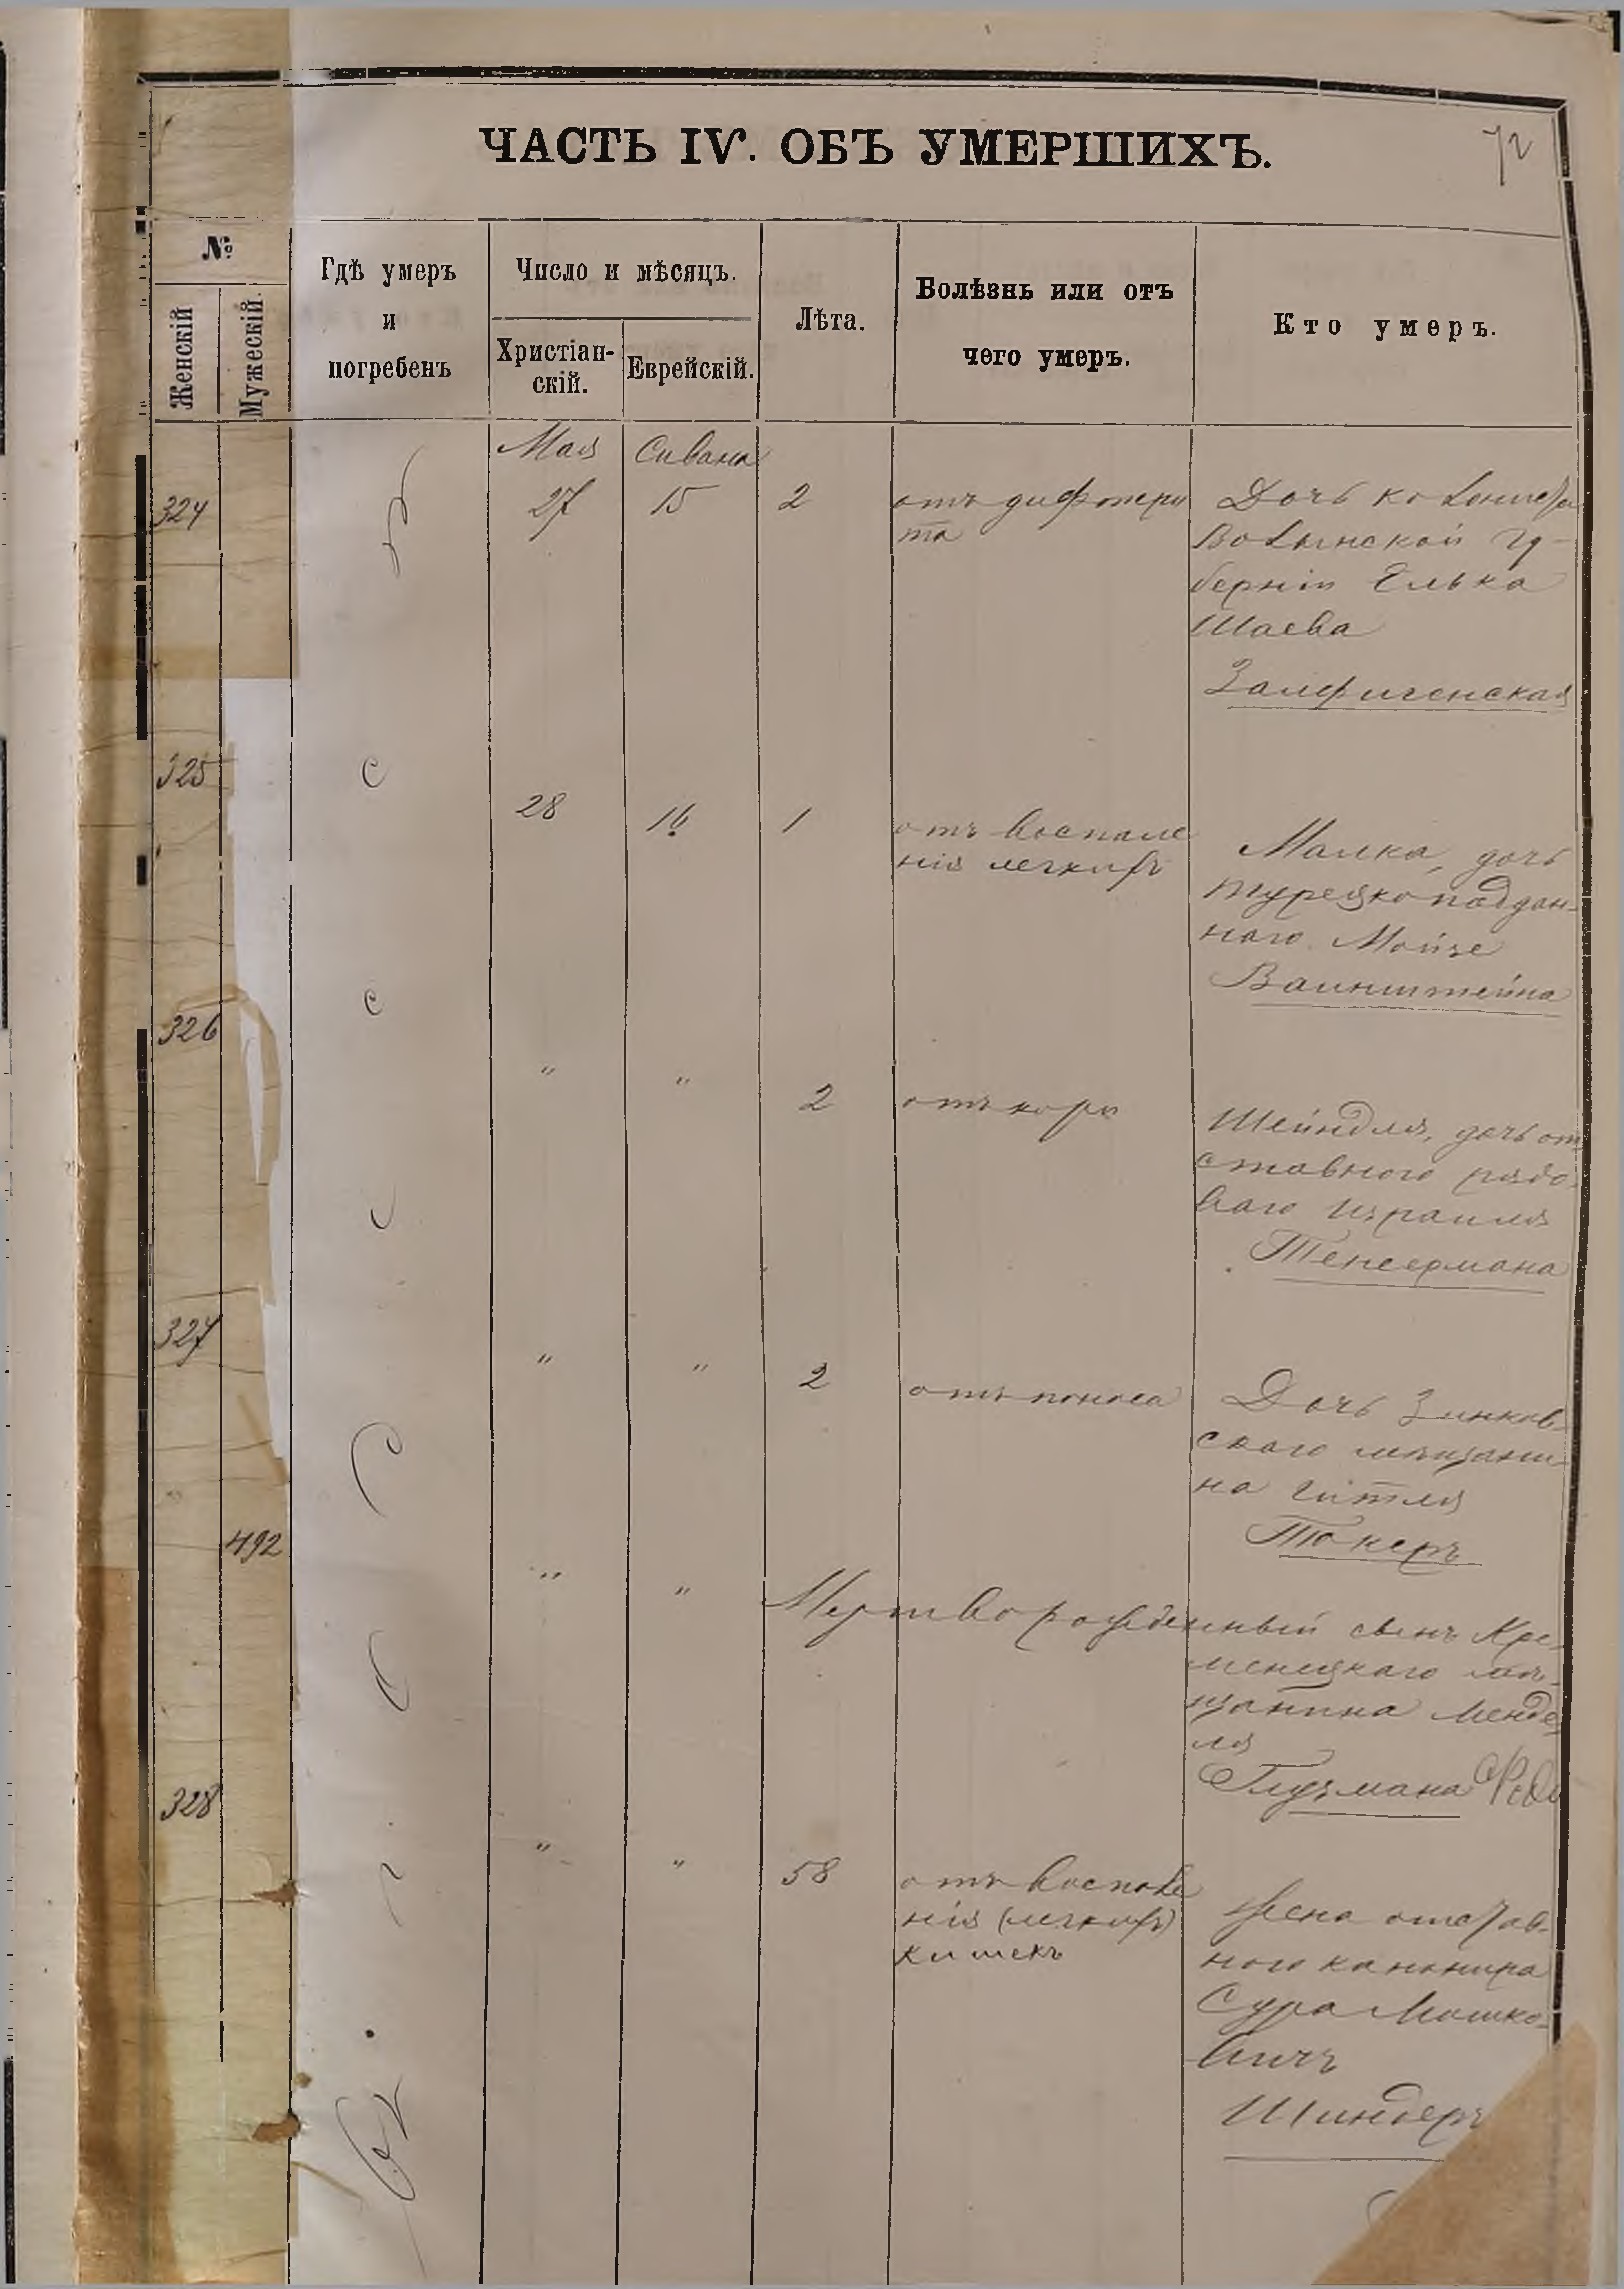 ЧАСТЬ IV. ОБЪ УМЕРШИХЪ.
72
№
Женскій
Мужескій.
Гдѣ умеръ
и
погребенъ
Число и мѣсяцъ.
Христіан-
скій.
Еврейскій.
Лѣта.
Болѣзнь или отъ
чего умеръ.
Кто умеръ.
Мая Сивана
324 27 15 2 отъ дифтери
та
Дочь колониста
Волынской гу-
берніи Елька
Шаева
325 С 28 16 1 отъ воспале
нія легкихъ
Малка, дочь
турецкоподдан-
наго Мойзе
Ваинштейна
326 С " " 2 отъ кори
Шейндля, дочь от
ставного рядо-
ваго Израиля
Тенсермана
327 " " 2 отъ поноса
Дочь Зинков-
скаго мѣщани-
на Гитля
Токеръ
492 " " Мертворожденный сынъ Кре-
менецкаго мѣ-
щанина Менде
ля
Глузмана
328 " " 58 отъ воспале
нія (легкихъ)
кишекъ
Жена отстав-
ного канонира
Сура Мошко-
вичъ
Шиндеръ